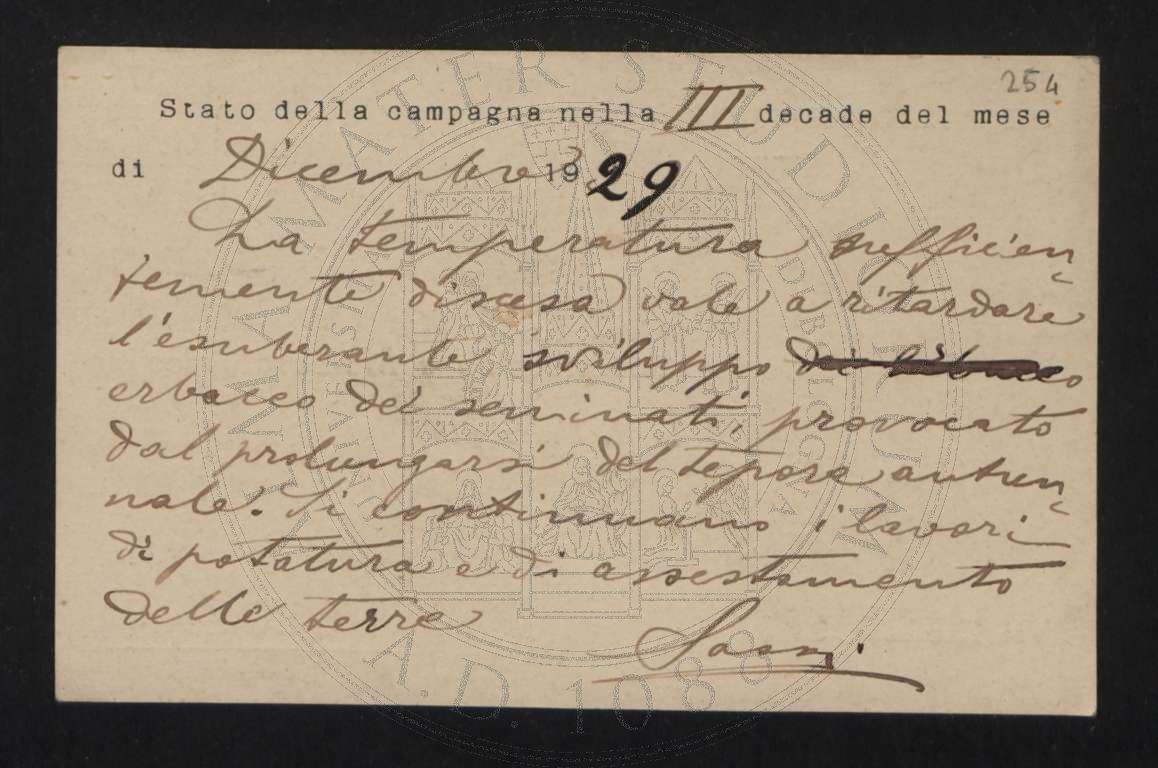 254
Stato della campagna nella III decade del mese
di Dicembre 1929
La temperatura sufficien-
temente discesa vale a ritardare
l'esuberante sviluppo
erbaceo dei seminati, provocato
dal prolungarsi del tepore autun-
nale. Si continuano i lavori
di potatura e di assestamento
delle terre
ALMA MATER STUDIORUM
A.D. 1088